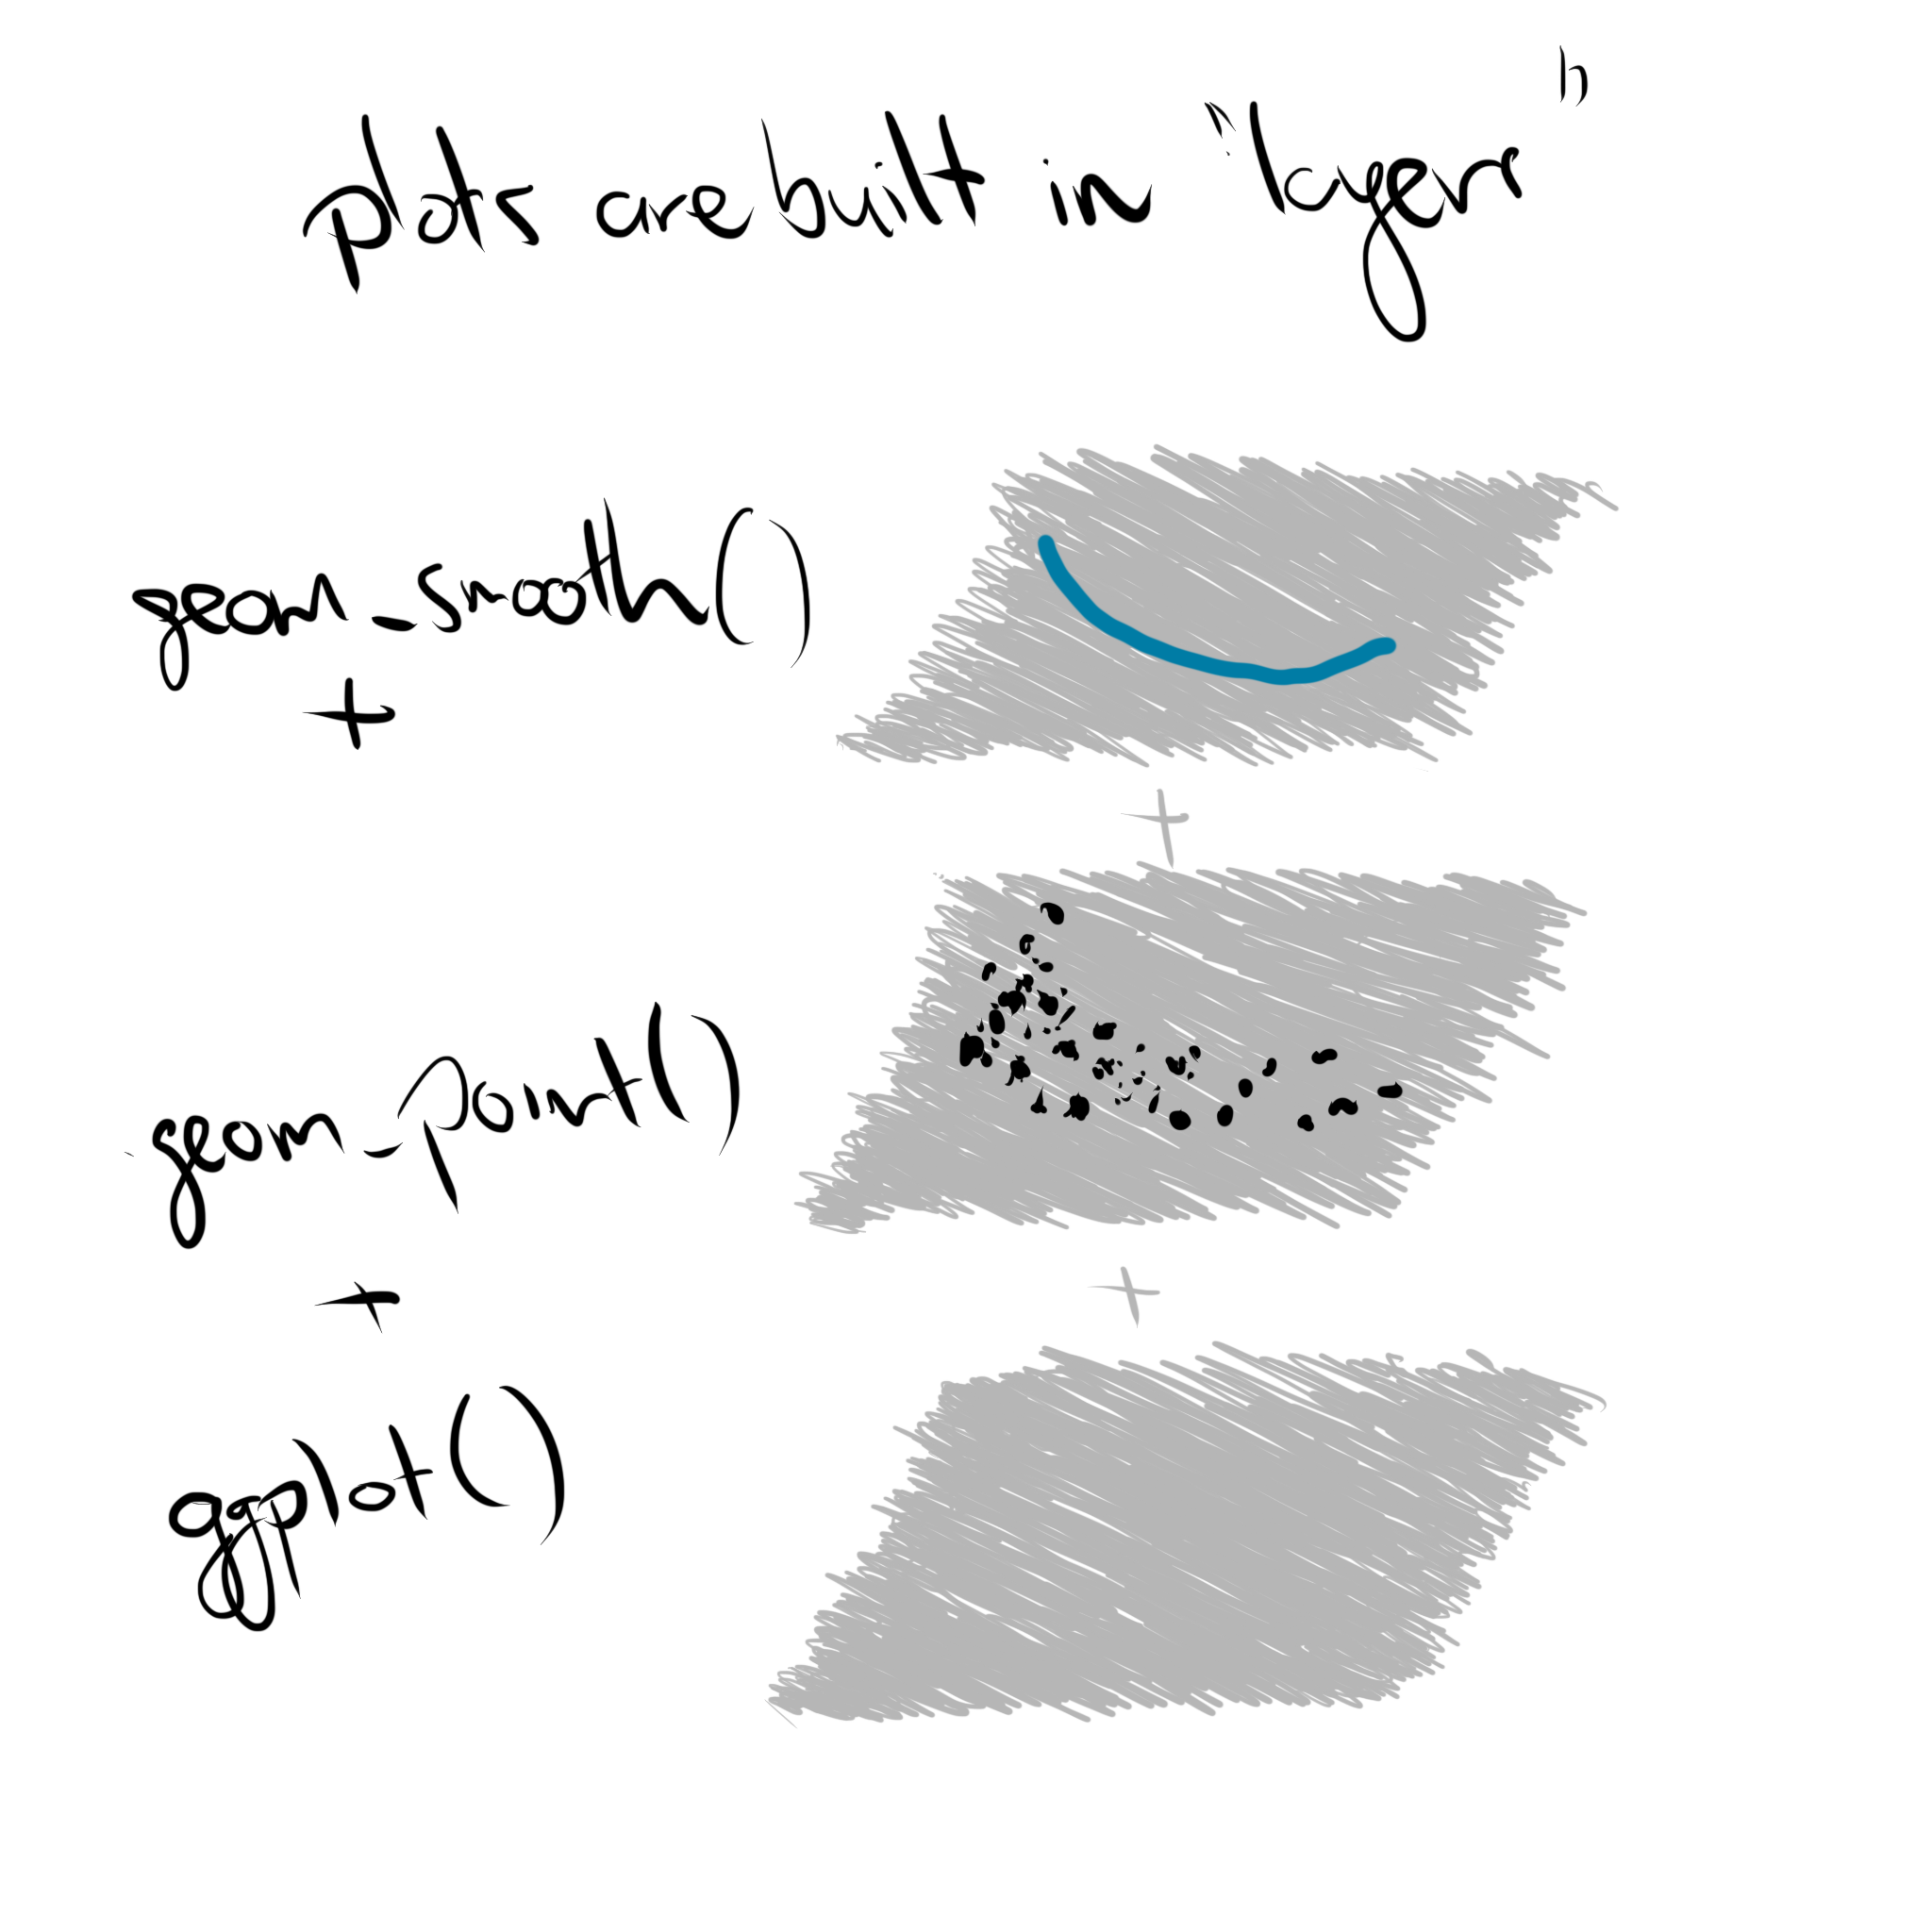 plots are built in "layers"
geom_smooth()
+
+
geom_point()
+
+
ggplot()